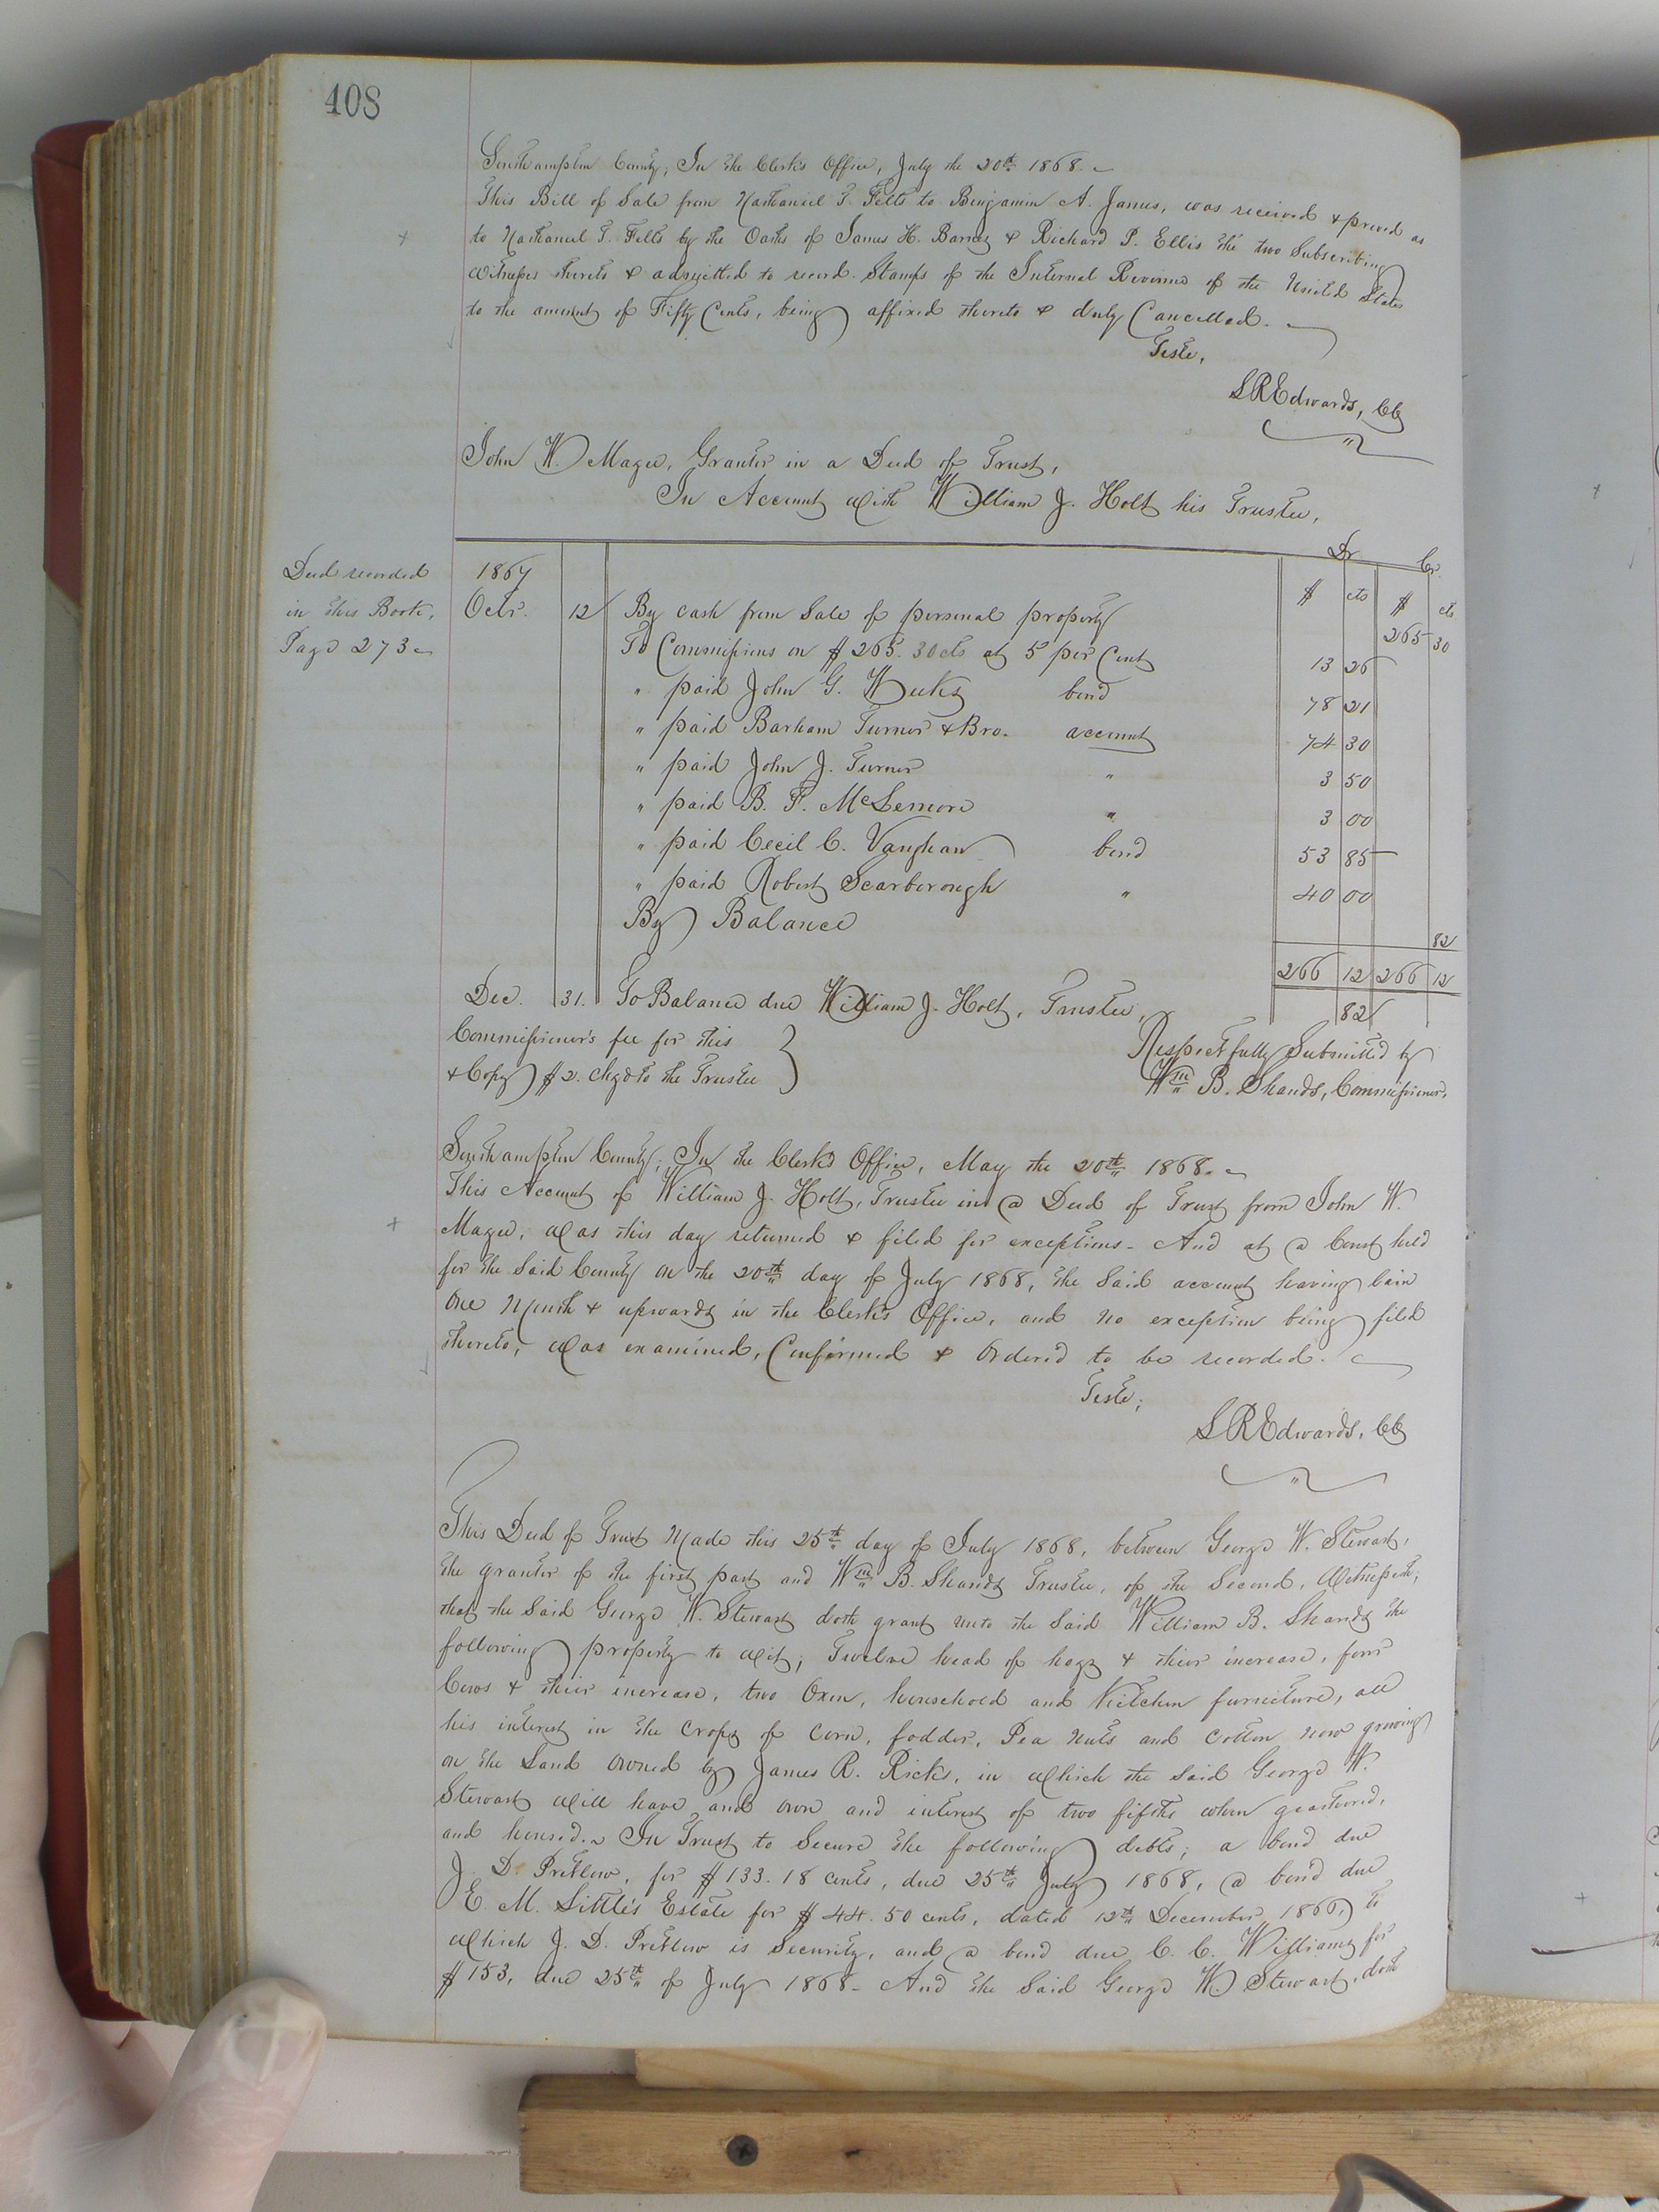 408
Southampton County; In the Clerk's Office, July the 20th 1868.
This Bill of Sale from Nathaniel T. Felts to Benjamin A. Janes, was received & proved as
to Nathaniel T. Felts by the Oaths of James H. Barnes & Richard P. Ellis the two Subscribing
Witnesses thereto & admitted to record. Stamps of the Internal Revenue of the United States
to the amount of Fifty Cents, being affixed thereto & duly Cancelled.
Teste,
L R Edwards, CC
John W. Magee, Grantor in a Deed of Trust,
In Account with William J. Holt his Trustee,
Dr Cr.
Deed recorded
in this Book,
Page 273
1867 $ cts $ cts
Octr. 12 By cash from Sale of personal property 265 30
To Commissions on $265.30cts at 5 per Cent 13 26
" paid John G. Weeks bond 78 21
" paid Barham Turner & Bro. account 74 30
" paid John J. Turner " 3 50
" paid B. F. McLemore " 3 00
" paid Cecil C. Vaughan bond 53 85
" paid Robert Scarborough " 40 00
By Balance 82
266 12 266 12
Dec. 31. To Balance due William J. Holt, Trustee, 82
Commissioner's fee for this
& Copy $2. chgd to the Trustee
Respectfully Submitted by
Wm B. Shands, Commissioner.
Southampton County; In the Clerk's Office, May the 20th 1868.
This Account of William J. Holt, Trustee in a Deed of Trust from John W.
Magee, was this day returned & filed for exceptions. And at a Court held
for the Said County on the 20th day of July 1868, the Said account having lain
One Month & upwards in the Clerk's Office, and no exception being filed
thereto, was examined, Confirmed & Ordered to be recorded.
Teste;
L R Edwards, CC
This Deed of Trust Made this 25th day of July 1868, between George W. Stewart,
the grantor of the first part and Wm B. Shands Trustee, of the Second, Witnesseth;
that the Said George W. Stewart doth grant unto the Said William B. Shands the
following property to wit; Twelve head of hogs & their increase, four
Cows & their increase, two Oxen, household and Kitchen furniture, all
his interest in the Crops of corn, fodder, Pea nuts and cotton now growing
on the Land owned by James R. Ricks, in which the Said George W.
Stewart will have and own and interest of two fifths when gathered,
and housed. In Trust to Secure the following debts; a bond due
J. D. Pretlow, for $133.18 cents, due 25th July 1868, a bond due
E. M. Little's Estate for $44.50 cents, dated 12th December 1860, to
which J. D. Pretlow is Security, and a bond due C. C. Williams for
$153, due 25th of July 1868. And the Said George W. Stewart, doth